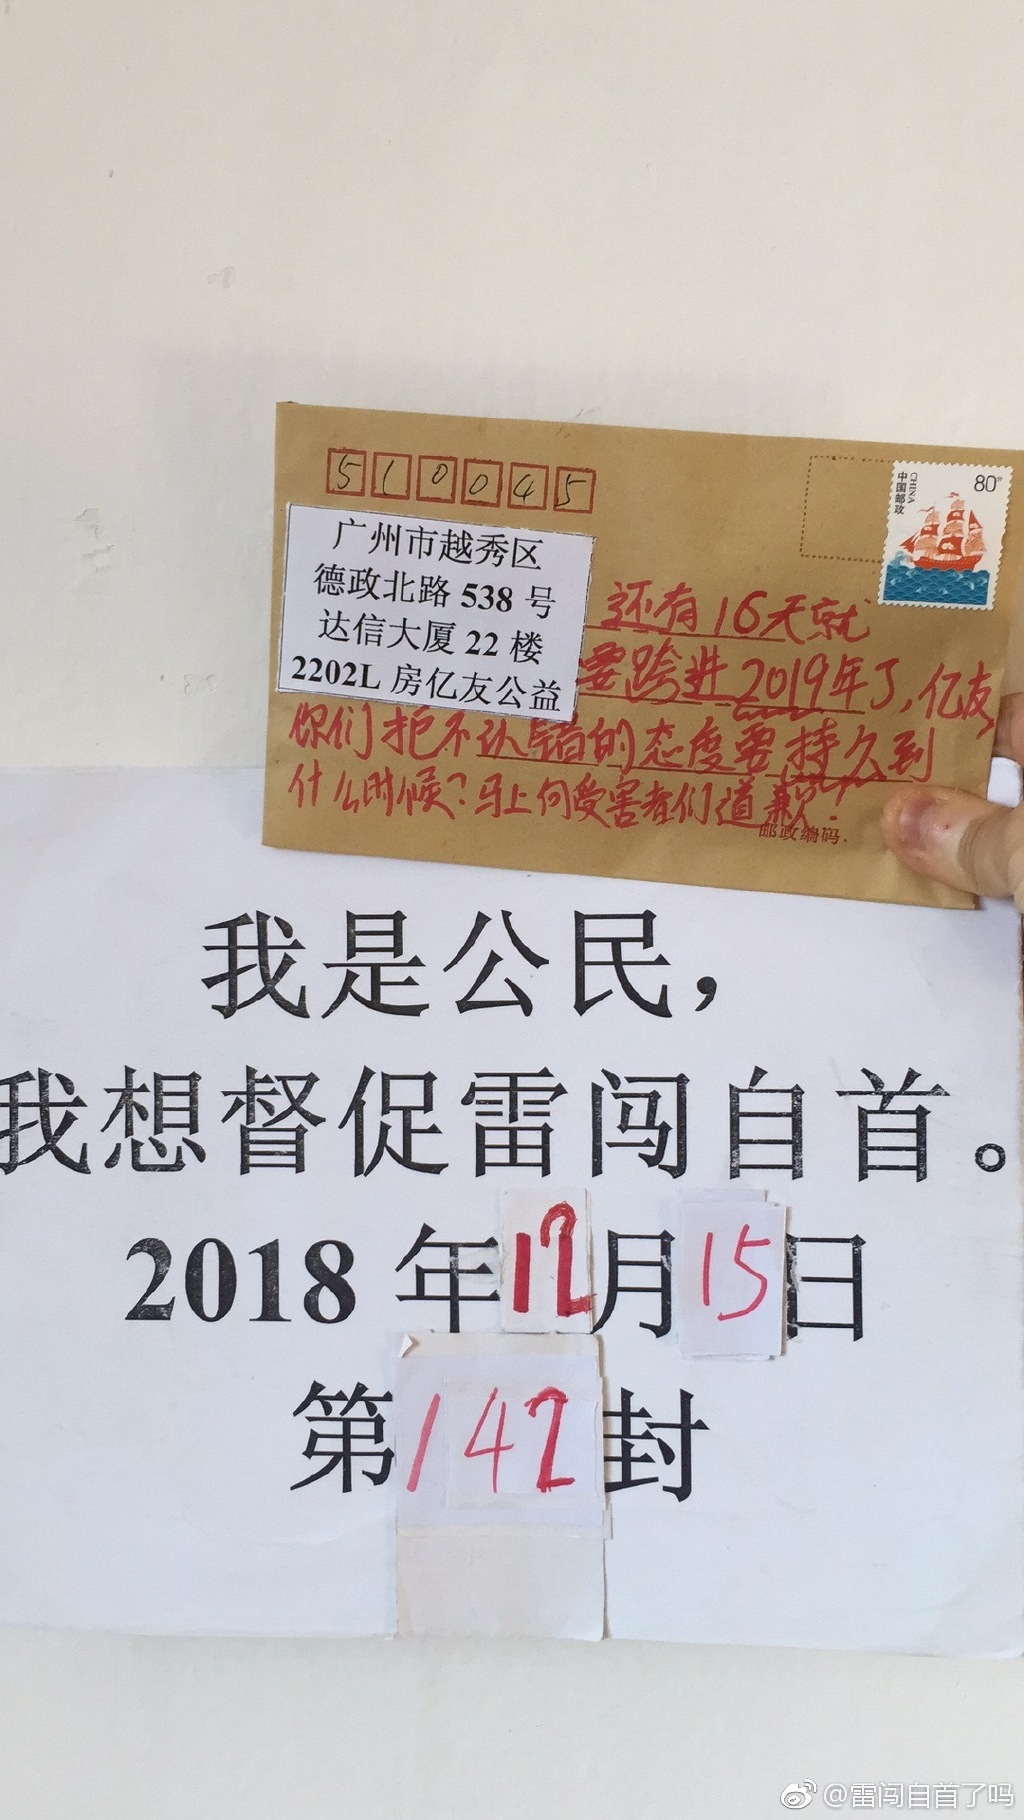 510045
中国邮政
CHINA
80分
广州市越秀区
德政北路 538 号
达信大厦 22 楼
2202L 房亿友公益
还有16天就
要跨进2019年了,亿友
你们拒不认错的态度要持久到
什么时候?马上向受害者们道歉!
邮政编码:
我是公民，
我想督促雷闯自首。
2018 年12月15日
第142封
@雷闯自首了吗